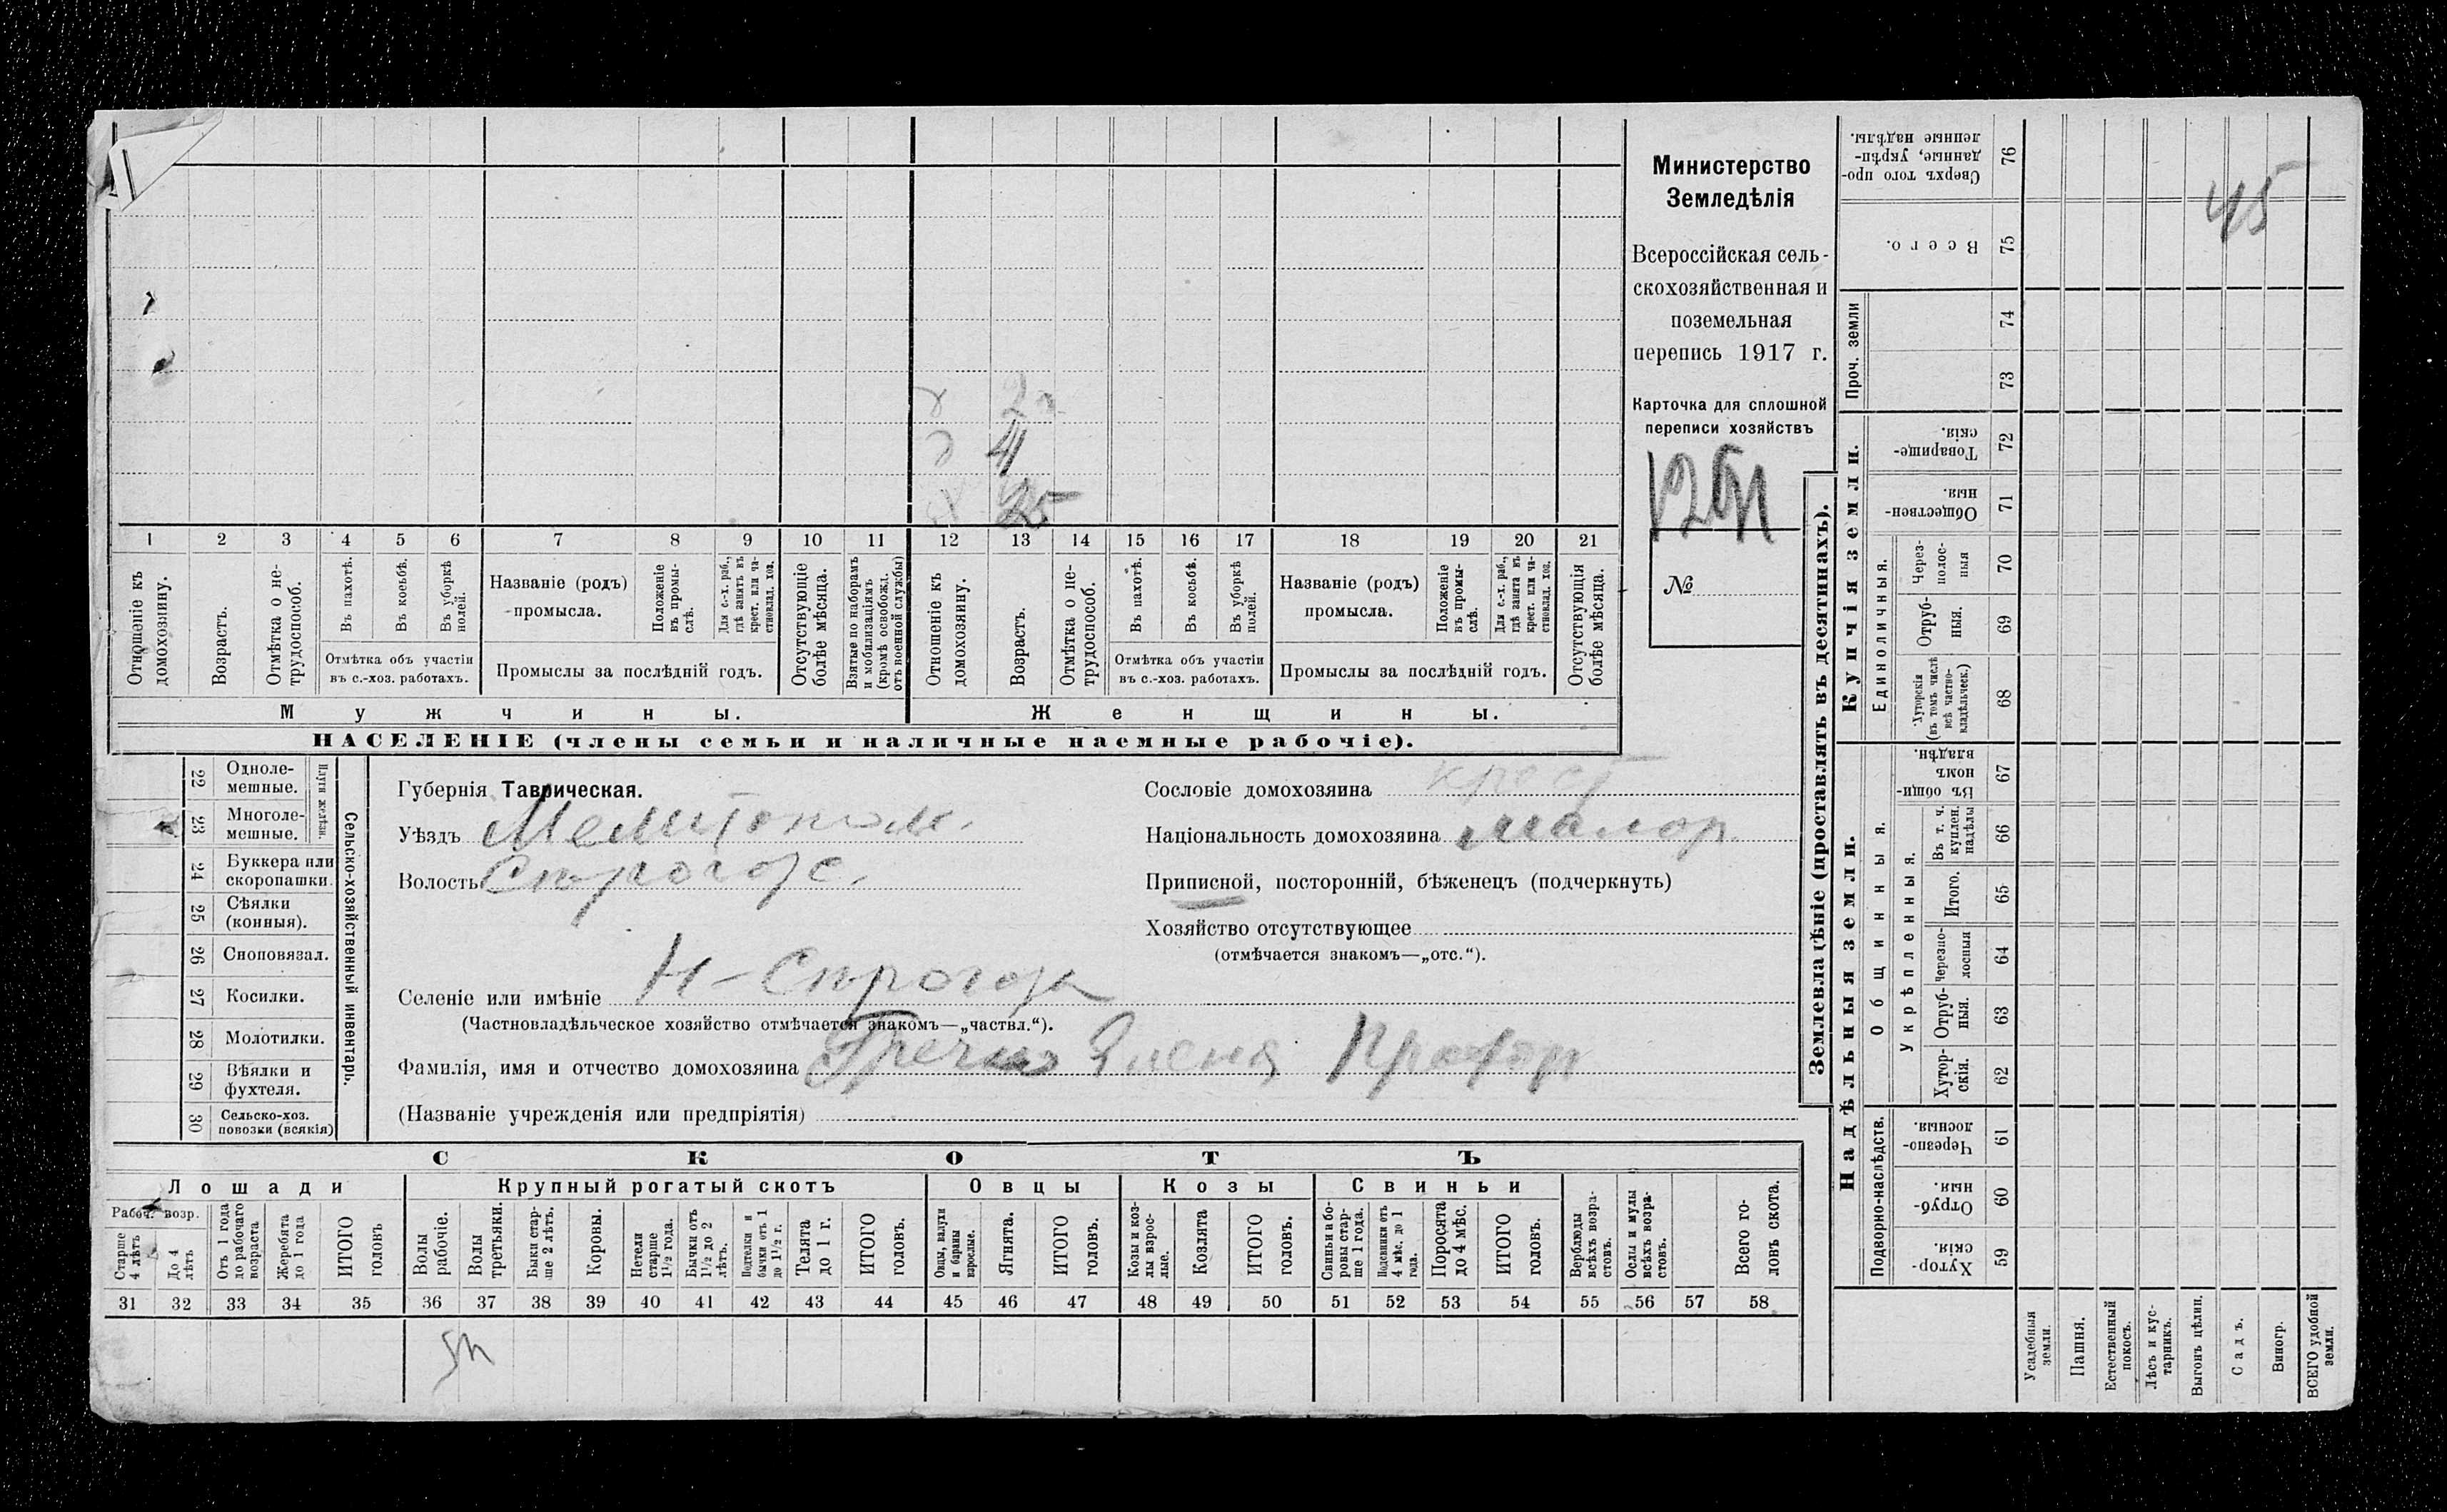 Министерство
Земледѣлія
Всероссійская сель-
скохозяйственная и
поземельная
перепись 1917 г.
Карточка для сплошной
переписи хозяйствъ
№
45
2
4
25
1 2 3 4 5 6 7 8 9 10 11 12 13 14 15 16 17 18 19 20 21
Отношеніе къ домохозяину.
Возрастъ.
Отмѣтка о не-трудоспособ.
Въ пахотѣ.
Въ косьбѣ.
Въ уборкѣ полей.
Отмѣтка объ участіи
въ с.-хоз. работахъ.
Названіе (родъ)
промысла.
Положеніе въ промы-слѣ.
Для с.-х. раб., гдѣ занятъ въ крест. или ча-стновлад. хоз.
Промыслы за послѣдній годъ.
Отсутствующіе болѣе мѣсяца.
Взятые по наборамъ и мобилизаціямъ (кромѣ освобожд. отъ военной службы)
Отношеніе къ домохозяину.
Возрастъ.
Отмѣтка о не-трудоспособ.
Въ пахотѣ.
Въ косьбѣ.
Въ уборкѣ полей.
Отмѣтка объ участіи
въ с.-хоз. работахъ.
Названіе (родъ)
промысла.
Положеніе въ промы-слѣ.
Для с.-х. раб., гдѣ занята въ крест. или ча-стновлад. хоз.
Промыслы за послѣдній годъ.
Отсутствующія болѣе мѣсяца.
Мужчины.
Женщины.
НАСЕЛЕНІЕ (члены семьи и наличные наемные рабочіе).
Сельско-хозяйственный инвентарь.
Плуги желѣзн.
22 Одноле-мешные.
23 Многоле-мешные.
24 Буккера или скоропашки.
25 Сѣялки (конныя).
26 Сноповязал.
27 Косилки.
28 Молотилки.
29 Вѣялки и фухтеля.
30 Сельско-хоз. повозки (всякія)
Губернія Таврическая.
Уѣздъ Мелитопол.
Волость Сирогоз.
Сословіе домохозяина крест
Національность домохозяина малор.
Приписной, посторонній, бѣженецъ (подчеркнуть)
Хозяйство отсутствующее
(отмѣчается знакомъ—„отс.“).
Селеніе или имѣніе Н-Сирогозы
(Частновладѣльческое хозяйство отмѣчается знакомъ—„частвл.“).
Фамилія, имя и отчество домохозяина Елена
(Названіе учрежденія или предпріятія)
СКОТЪ
Лошади
Крупный рогатый скотъ
Овцы
Козы
Свиньи
Рабоч. возр.
Старше 4 лѣтъ
До 4 лѣтъ
Отъ 1 года до рабочаго возраста
Жеребята до 1 года
ИТОГО головъ
Волы рабочіе.
Волы третьяки.
Быки стар-ше 2 лѣтъ.
Коровы.
Нетели старше 1½ года.
Бычки отъ 1½ до 2 лѣтъ.
Подтелки и бычки отъ 1 до 1½ г.
Телята до 1 г.
ИТОГО головъ.
Овцы, валухи и бараны взрослые.
Ягнята.
ИТОГО головъ.
Козы и коз-лы взрос-лые.
Козлята
ИТОГО головъ.
Свиньи и бо-ровы стар-ше 1 года.
Подсвинки отъ 4 мѣс. до 1 года.
Поросята до 4 мѣс.
ИТОГО головъ.
Верблюды всѣхъ возра-стовъ.
Ослы и мулы всѣхъ возра-стовъ.
Всего го-ловъ скота.
31 32 33 34 35 36 37 38 39 40 41 42 43 44 45 46 47 48 49 50 51 52 53 54 55 56 57 58
Землевладѣніе (проставлять въ десятинахъ).
Купчія земли.
Надѣльныя земли.
Сверхъ того про-данные, укрѣп-ленные надѣлы. 76
Всего. 75
Проч. земли
74
73
Товарище-скія. 72
Обществен-ныя. 71
Единоличныя.
Через-полос-ныя 70
Отруб-ныя. 69
Хуторскія (въ томъ числѣ всѣ частно-владѣльческ.) 68
Общинныя.
Въ общи-номъ владѣн. 67
Укрѣпленныя.
Въ т. ч. куплен. надѣлы 66
Итого. 65
Черезпо-лосныя 64
Отруб-ныя. 63
Хутор-скія. 62
Подворно-наслѣдств.
Черезпо-лосныя. 61
Отруб-ныя. 60
Хутор-скія. 59
Усадебныя земли.
Пашня.
Естественный покосъ.
Лѣсъ и кус-тарникъ.
Выгонъ цѣлин.
Садъ.
Виногр.
ВСЕГО удобной земли.